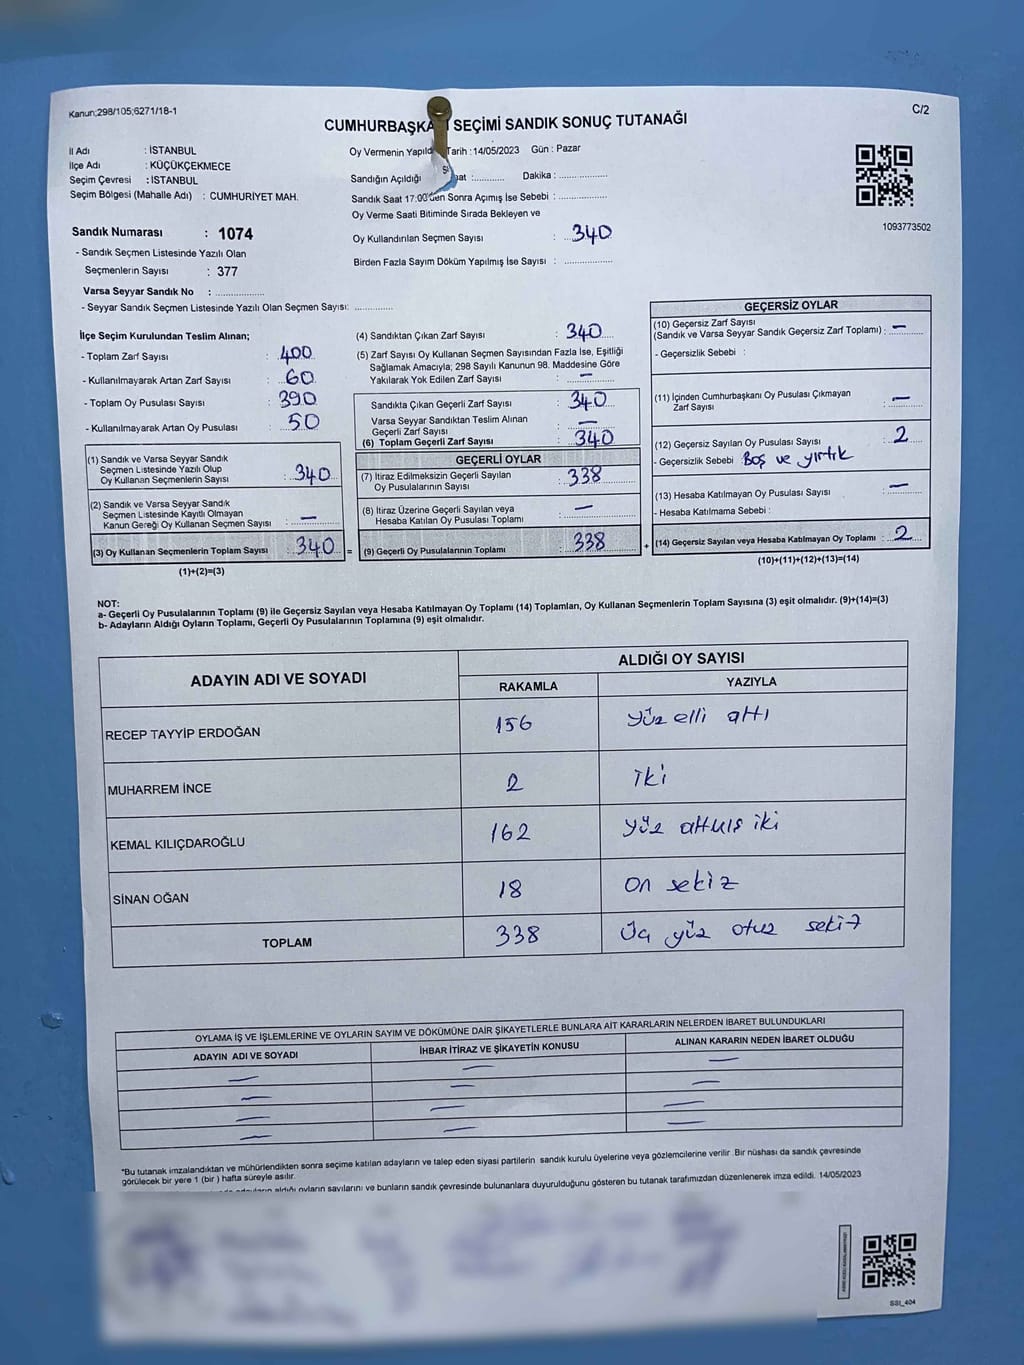 Kanun;298/105;6271/18-1
C/2
CUMHURBAŞKA SEÇİMİ SANDIK SONUÇ TUTANAĞI
İl Adı : İSTANBUL
İlçe Adı : KÜÇÜKÇEKMECE
Seçim Çevresi : İSTANBUL
Seçim Bölgesi (Mahalle Adı) : CUMHURİYET MAH.
Oy Vermenin Yapıld Tarih : 14/05/2023 Gün : Pazar
Sandığın Açıldığı Dakika : ..............
Sandık Saat 17:00'den Sonra Açımış İse Sebebi : ..............
Oy Verme Saati Bitiminde Sırada Bekleyen ve
Oy Kullandırılan Seçmen Sayısı : 340
Birden Fazla Sayım Döküm Yapılmış İse Sayısı : ..............
1093773502
Sandık Numarası : 1074
- Sandık Seçmen Listesinde Yazılı Olan
Seçmenlerin Sayısı : 377
Varsa Seyyar Sandık No : ..............
- Seyyar Sandık Seçmen Listesinde Yazılı Olan Seçmen Sayısı: ..............
İlçe Seçim Kurulundan Teslim Alınan;
- Toplam Zarf Sayısı : 400
- Kullanılmayarak Artan Zarf Sayısı : 60
- Toplam Oy Pusulası Sayısı : 390
- Kullanılmayarak Artan Oy Pusulası : 50
(1) Sandık ve Varsa Seyyar Sandık
Seçmen Listesinde Yazılı Olup
Oy Kullanan Seçmenlerin Sayısı : 340
(2) Sandık ve Varsa Seyyar Sandık
Seçmen Listesinde Kayıtlı Olmayan
Kanun Gereği Oy Kullanan Seçmen Sayısı : —
(3) Oy Kullanan Seçmenlerin Toplam Sayısı : 340 =
(1)+(2)=(3)
(4) Sandıktan Çıkan Zarf Sayısı : 340
(5) Zarf Sayısı Oy Kullanan Seçmen Sayısından Fazla İse, Eşitliği
Sağlamak Amacıyla; 298 Sayılı Kanunun 98. Maddesine Göre
Yakılarak Yok Edilen Zarf Sayısı : —
Sandıkta Çıkan Geçerli Zarf Sayısı : 340
Varsa Seyyar Sandıktan Teslim Alınan
Geçerli Zarf Sayısı : —
(6) Toplam Geçerli Zarf Sayısı : 340
GEÇERLİ OYLAR
(7) İtiraz Edilmeksizin Geçerli Sayılan
Oy Pusulalarının Sayısı : 338
(8) İtiraz Üzerine Geçerli Sayılan veya
Hesaba Katılan Oy Pusulası Toplamı : —
(9) Geçerli Oy Pusulalarının Toplamı : 338 +
GEÇERSİZ OYLAR
(10) Geçersiz Zarf Sayısı
(Sandık ve Varsa Seyyar Sandık Geçersiz Zarf Toplamı) : —
- Geçersizlik Sebebi :
(11) İçinden Cumhurbaşkanı Oy Pusulası Çıkmayan
Zarf Sayısı : —
(12) Geçersiz Sayılan Oy Pusulası Sayısı : 2
- Geçersizlik Sebebi Boş ve yırtık
(13) Hesaba Katılmayan Oy Pusulası Sayısı : —
- Hesaba Katılmama Sebebi :
(14) Geçersiz Sayılan veya Hesaba Katılmayan Oy Toplamı : 2
(10)+(11)+(12)+(13)=(14)
NOT:
a- Geçerli Oy Pusulalarının Toplamı (9) ile Geçersiz Sayılan veya Hesaba Katılmayan Oy Toplamı (14) Toplamları, Oy Kullanan Seçmenlerin Toplam Sayısına (3) eşit olmalıdır. (9)+(14)=(3)
b- Adayların Aldığı Oyların Toplamı, Geçerli Oy Pusulalarının Toplamına (9) eşit olmalıdır.
ADAYIN ADI VE SOYADI
ALDIĞI OY SAYISI
RAKAMLA YAZIYLA
RECEP TAYYİP ERDOĞAN 156 yüz elli altı
MUHARREM İNCE 2 iki
KEMAL KILIÇDAROĞLU 162 yüz altmış iki
SİNAN OĞAN 18 on sekiz
TOPLAM 338 Üç yüz otuz sekiz
OYLAMA İŞ VE İŞLEMLERİNE VE OYLARIN SAYIM VE DÖKÜMÜNE DAİR ŞİKAYETLERLE BUNLARA AİT KARARLARIN NELERDEN İBARET BULUNDUKLARI
ADAYIN ADI VE SOYADI İHBAR İTİRAZ VE ŞİKAYETİN KONUSU ALINAN KARARIN NEDEN İBARET OLDUĞU
— — —
— — —
— — —
— — —
*Bu tutanak imzalandıktan ve mühürlendikten sonra seçime katılan adayların ve talep eden siyasi partilerin sandık kurulu üyelerine veya gözlemcilerine verilir .Bir nüshası da sandık çevresinde
görülecek bir yere 1 (bir ) hafta süreyle asılır.
aldığı oyların sayılarını ve bunların sandık çevresinde bulunanlara duyurulduğunu gösteren bu tutanak tarafımızdan düzenlenerek imza edildi. 14/05/2023
SSI_404